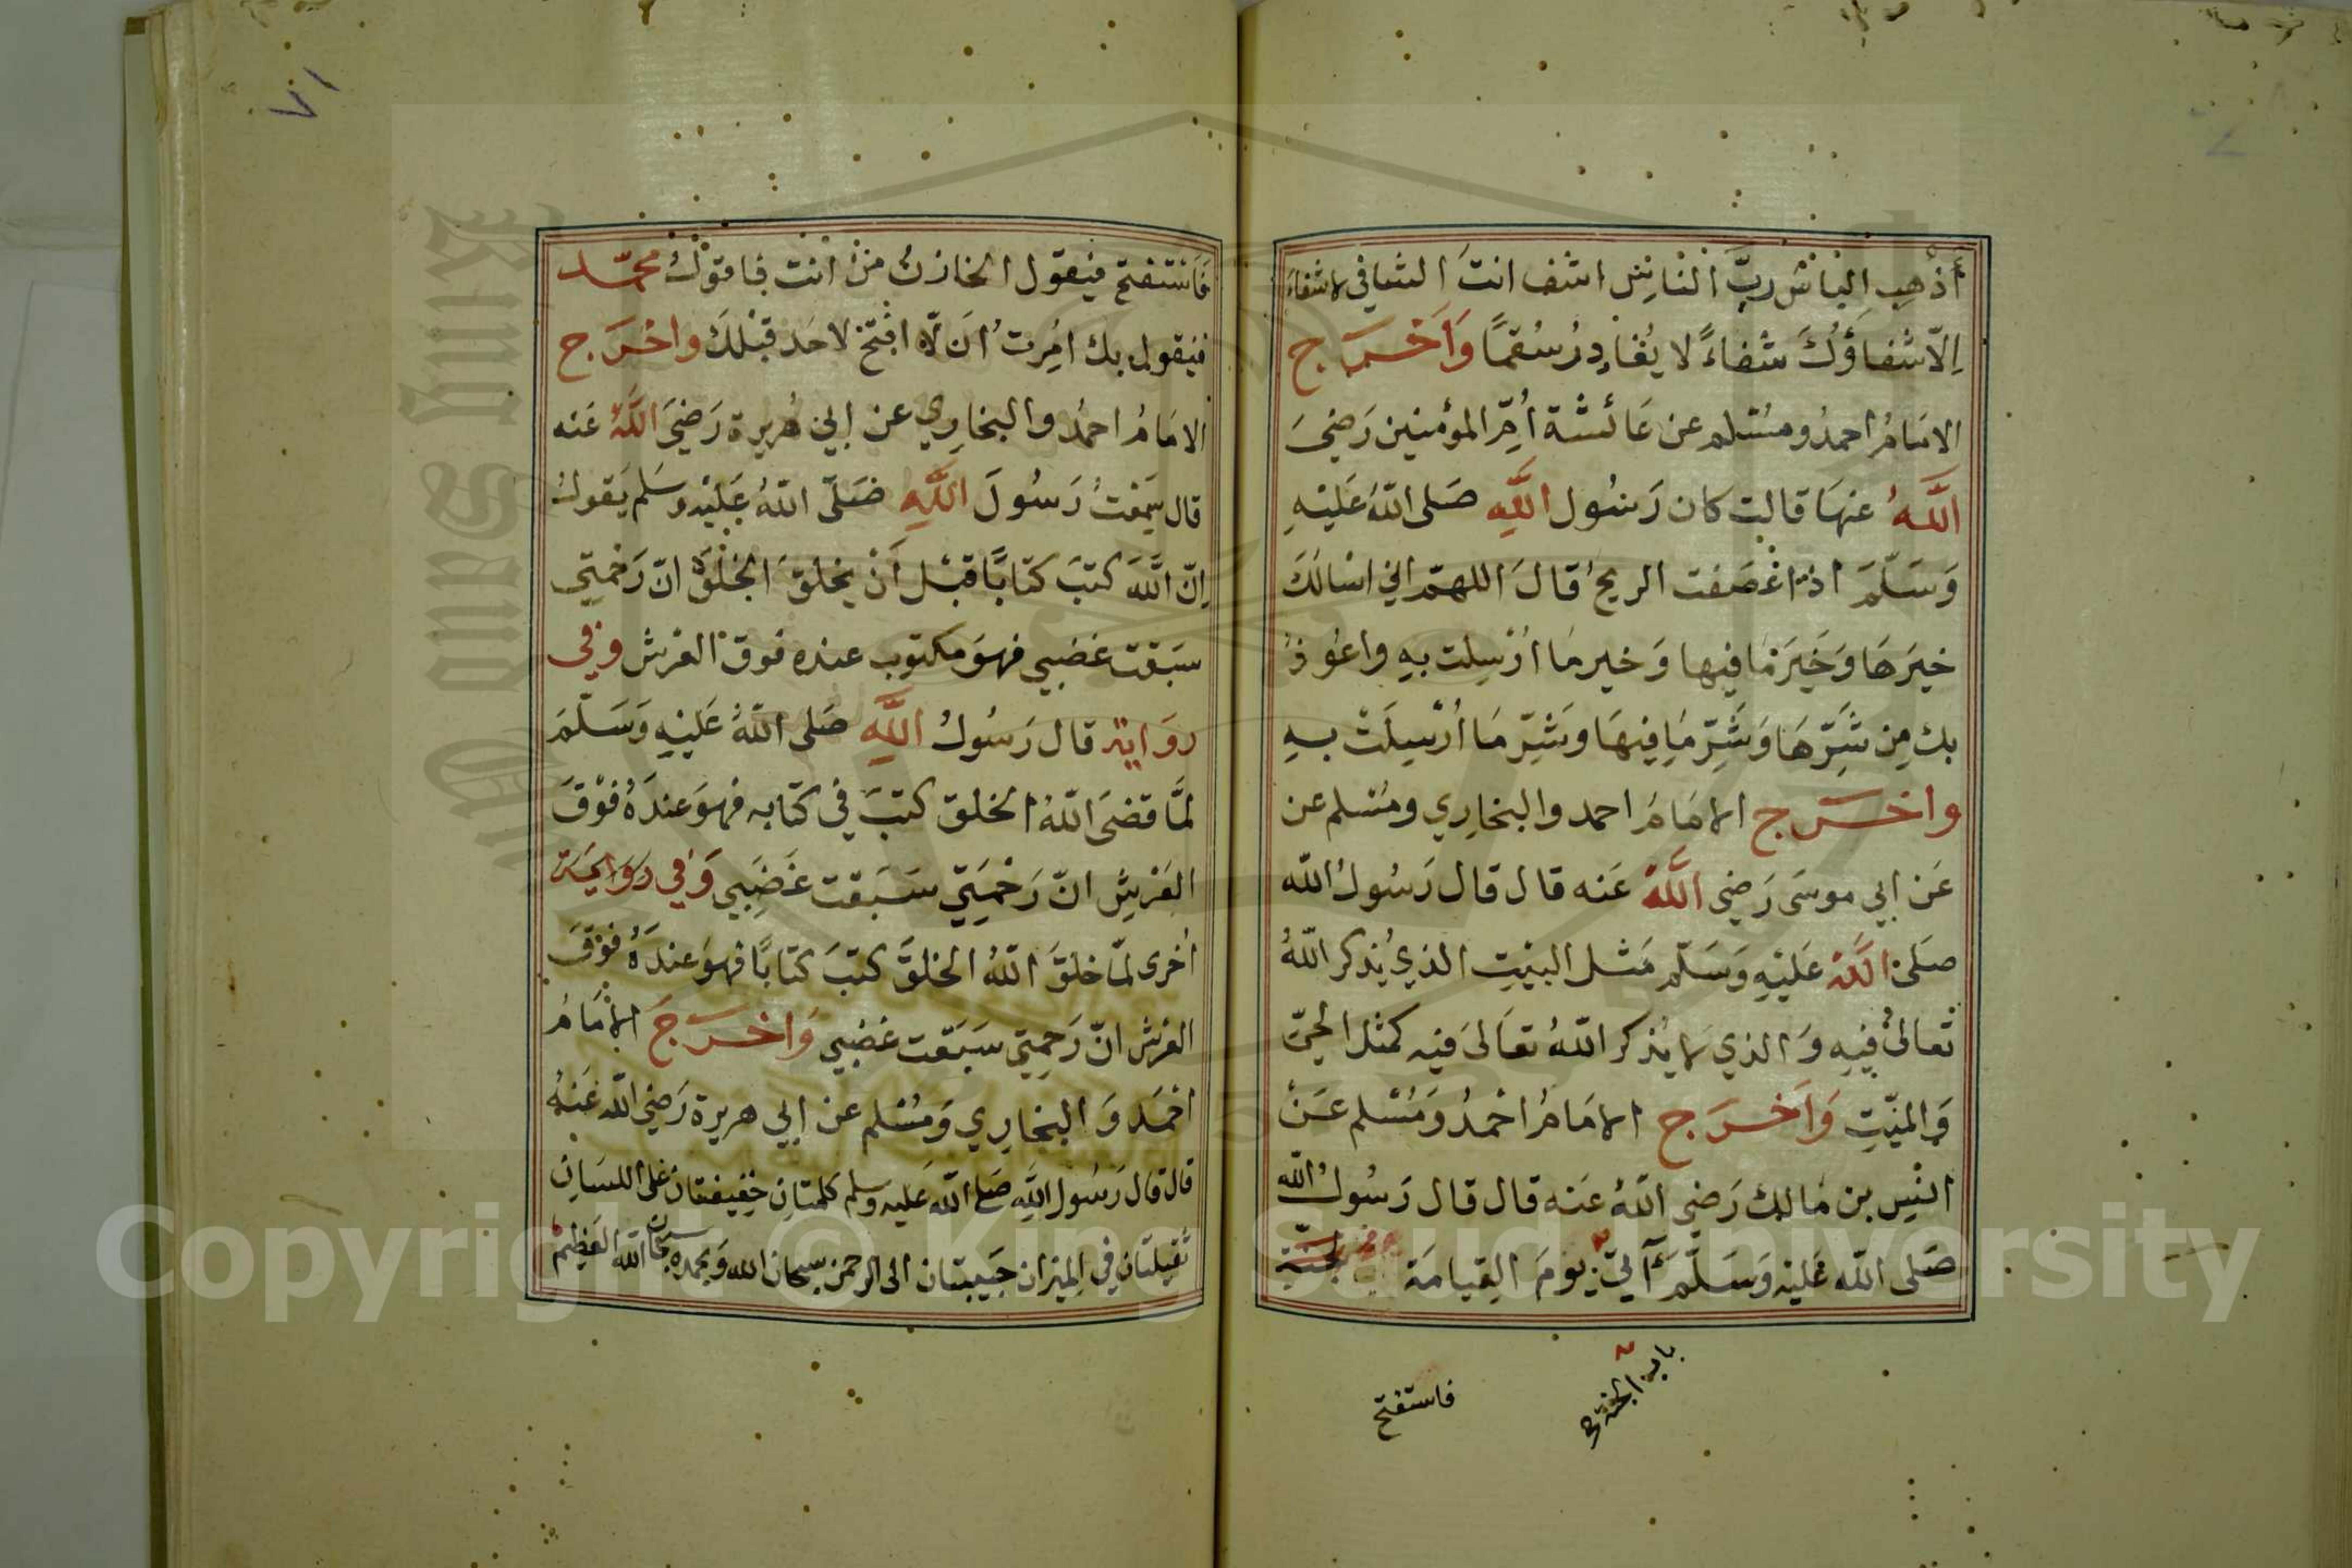 أَذْهِبِ البَاسَ رَبَّ النَّاسِ اشف انتَ الشافي لا شفاءَ
اِلّا شفاؤُكَ شفاءً لا يُغَادِرُ سُقمًا وَاَخْرَج
الامَامُ احمدُ ومسْلم عن عَائشة اُمِّ المؤمنين رَضيَ
اللَّهُ عنهَا قالت كان رَسُول اللَّهِ صَلى اللّهُ عَلَيْهِ
وَسَلّمَ اذا عْصَفت الريحُ قالَ اللهمّ اني اسْالكَ
خيرَهَا وَخَيرَ مَا فيها وَخير مَا اُرْسِلت بهِ واعُوذُ
بك مِن شَرِّهَا وَشَرِّ مَا فِيهَا وَشَرِّ مَا اُرْسِلَتْ بهِ
واخرج الامَامُ احمد والبخارِي ومسْلم عن
عَن ابي موسَى رَضِي اللَّهُ عَنه قال قال رَسُولُ اللّه
صَلى اللَّهُ عَلَيْهِ وَسَلّم مَثل البيْتِ الذي يُذكر اللّهُ
تعَالىٰ فِيْهِ وَالذي لا يُذكر اللّهُ تعَالىَ فيه كمثل الحيّ
وَالميّتِ وَاَخرَج الامَامُ احْمدُ وَمُسْلم عَنْ
انسِ بن مَالك رَضي اللّهُ عَنه قال قال رَسُولُ اللّه
صَلى اللّه عَليْه وَسَلّمَ آتي يومَ القِيامَة الجنّة
باب الجنة صح
فاستفتح
٧١
فَاسْتفتح فيَقول الخازنُ مَنْ انت فاقولُ محمّد
فيَقول بك اُمِرتُ اَن لّا افتح لاحَد قبْلكَ واخْرَج
الامَامُ احمدُ والبخارِي عن ابي هُريرة رَضيَ اللَّهُ عَنه
قال سَمعْتُ رَسُولَ اللَّهِ صَلّى اللّهُ عَليْه وسَلم يَقولُ
اِنّ اللَّهَ كتبَ كتابًا قبْل أَنْ يخلقَ الخلْقَ انّ رَحْمتِي
سبَقت غضبي فهوَ مكتوب عنده فوق العَرش وفي
روَاية قال رَسُولُ اللَّهِ صَلى اللّهُ عَليْهِ وَسَلّمَ
لمَّا قضَى اللّهُ الخلق كتبَ في كتابه فهوَ عندَهُ فوْقَ
العَرْشِ انّ رَحْمَتِي سَبَقت غَضَبي وَفي رِوَايَة
اُخرى لمّا خلقَ اللّهُ الخلقَ كتبَ كتابًا فهوَ عندَهُ فوْقَ
العَرش انّ رَحمتي سَبَقت غضبي وَاخرَج الامَامُ
احْمَد وَالبخارِي وَمُسْلم عن ابي هريرة رَضي اللّه عَنهُ
قال قال رَسُول اللّهِ صَلى اللّه عَليه وسلم كلمتانِ خفيفتان عَلى اللسَانِ
ثقيلتَانِ في الميزان حَبيبتان الى الرحمن سبحان الله وَبحمده سُبحان اللّه العَظيم
Copyright © King Saud University
King Saud University